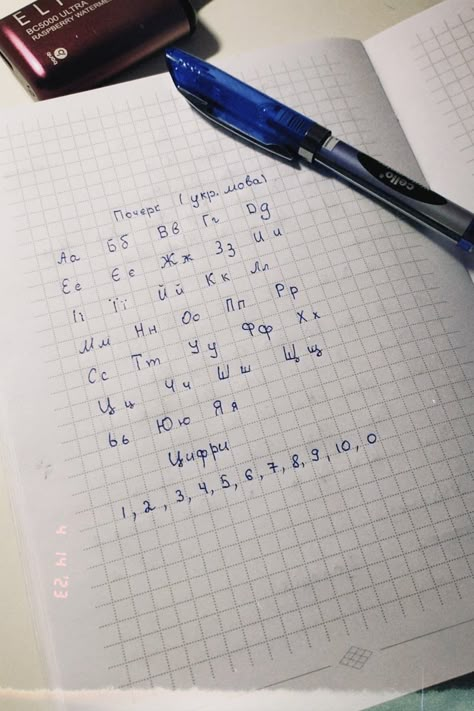 BC5000 ULTRA
RASPBERRY
cello
Почерк (укр. мова)
Аа Бб Вв Гг Дд
Ее Єє Жж Зз Ии
Іі Її Йй Кк Лл
Мм Нн Оо Пп Рр
Сс Тт Уу Фф Хх
Цц Чч Шш Щщ
Ьь Юю Яя
Цифри
1, 2, 3, 4, 5, 6, 7, 8, 9, 10, 0
4 14 '23